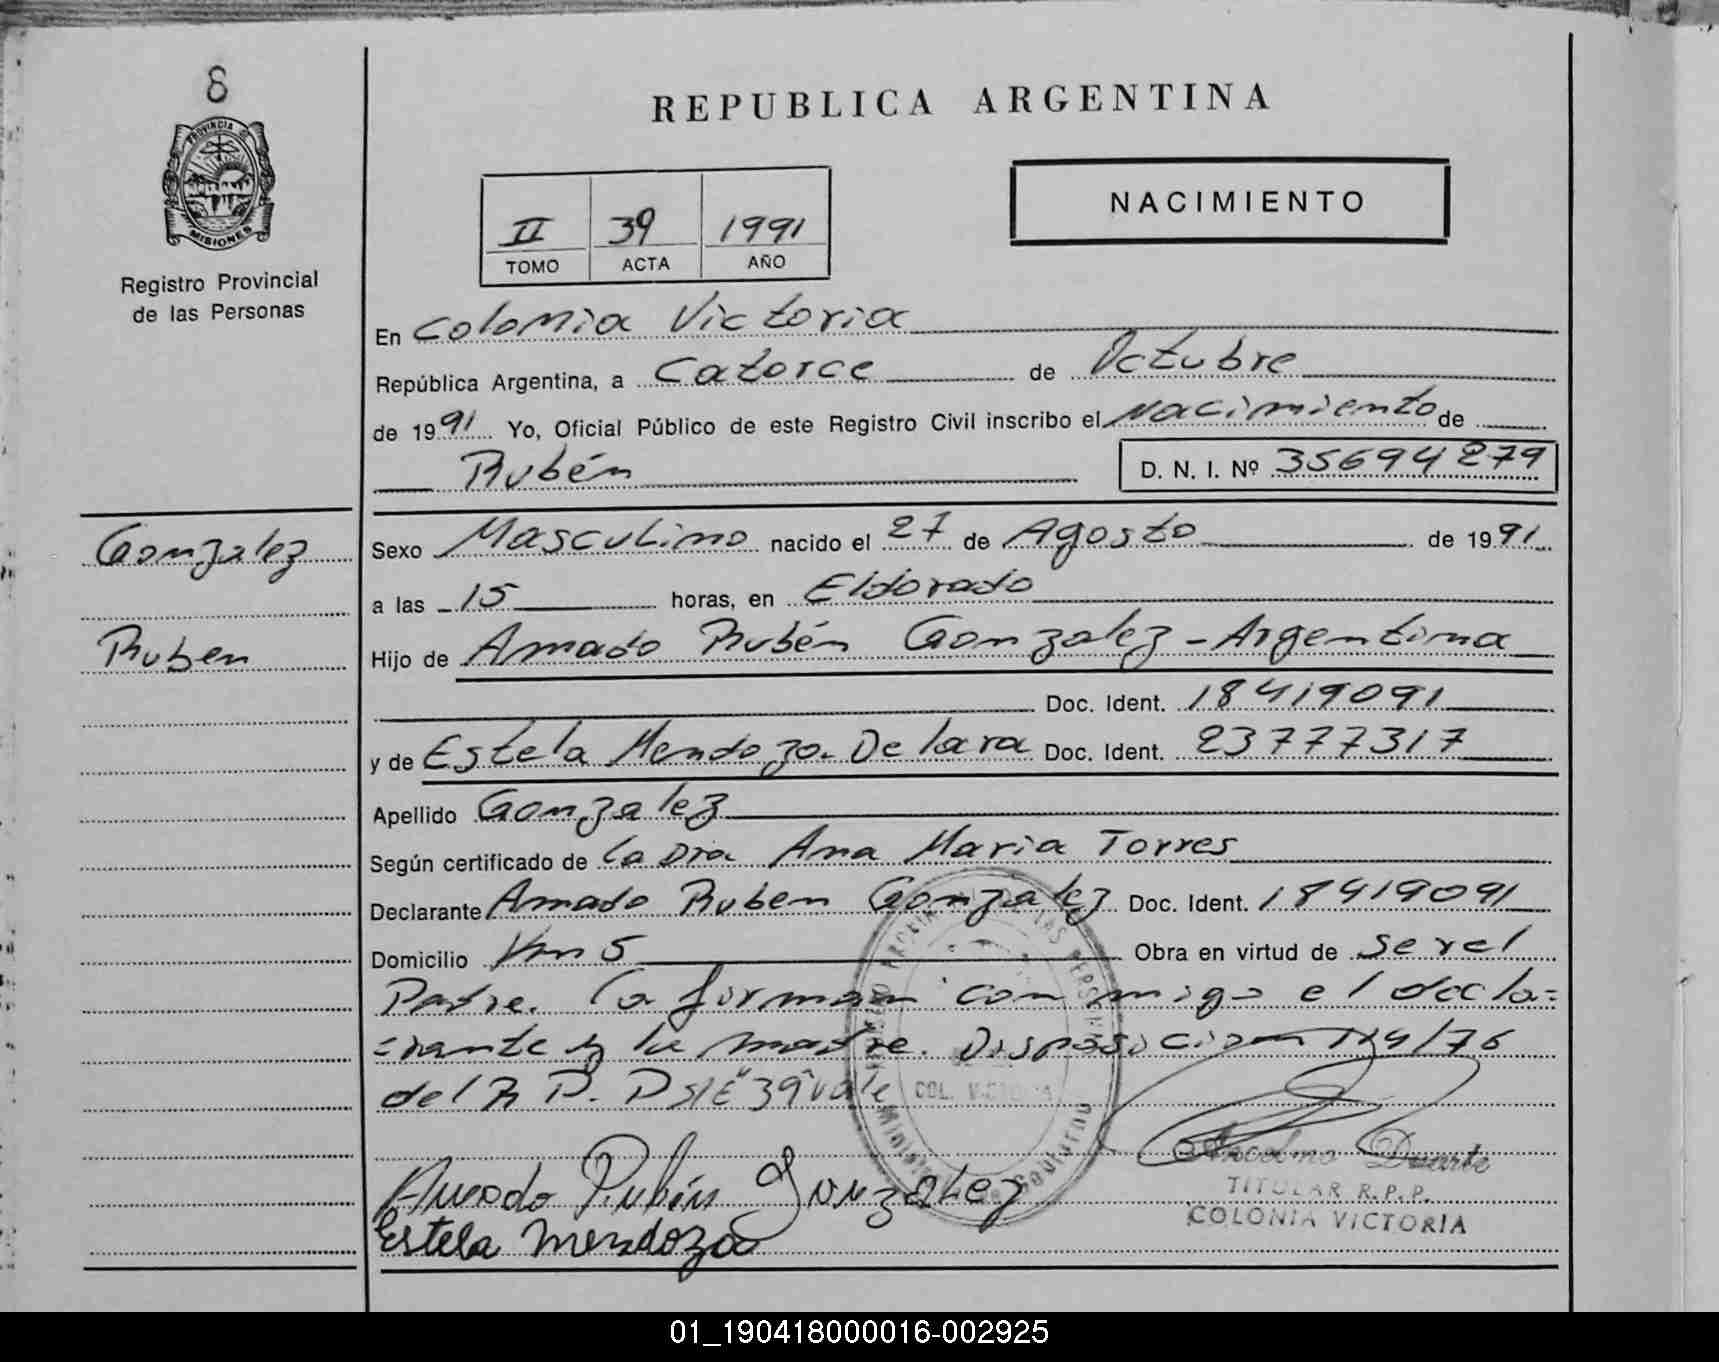 8
PROVINCIA DE
MISIONES
Registro Provincial
de las Personas
REPUBLICA ARGENTINA
NACIMIENTO
II 39 1991
TOMO ACTA AÑO
En Colonia Victoria
República Argentina, a Catorce de Octubre
de 1991 Yo, Oficial Público de este Registro Civil inscribo el Nacimiento de
Rubén D. N. I. Nº 35694279
Gonzalez
Ruben
Sexo Masculino nacido el 27 de Agosto de 1991
a las 15 horas, en Eldorado
Hijo de Amado Rubén Gonzalez - Argentina
Doc. Ident. 18419091
y de Estela Mendoza. De lara Doc. Ident. 23777317
Apellido Gonzalez
Según certificado de la Dra Ana Maria Torres
Declarante Amado Ruben Gonzalez Doc. Ident. 18419091
Domicilio Km 5 Obra en virtud de ser el
Padre. La firman con migo el decla=
=rante y la madre. Disposicion 114/76
del R P. D S/E "39" vale
Amado Rubén Gonzalez
Estela Mendoza
COL. VICTORIA
Ministerio de Gobierno
Duarte
TITULAR R.P.P.
COLONIA VICTORIA
01_190418000016-002925